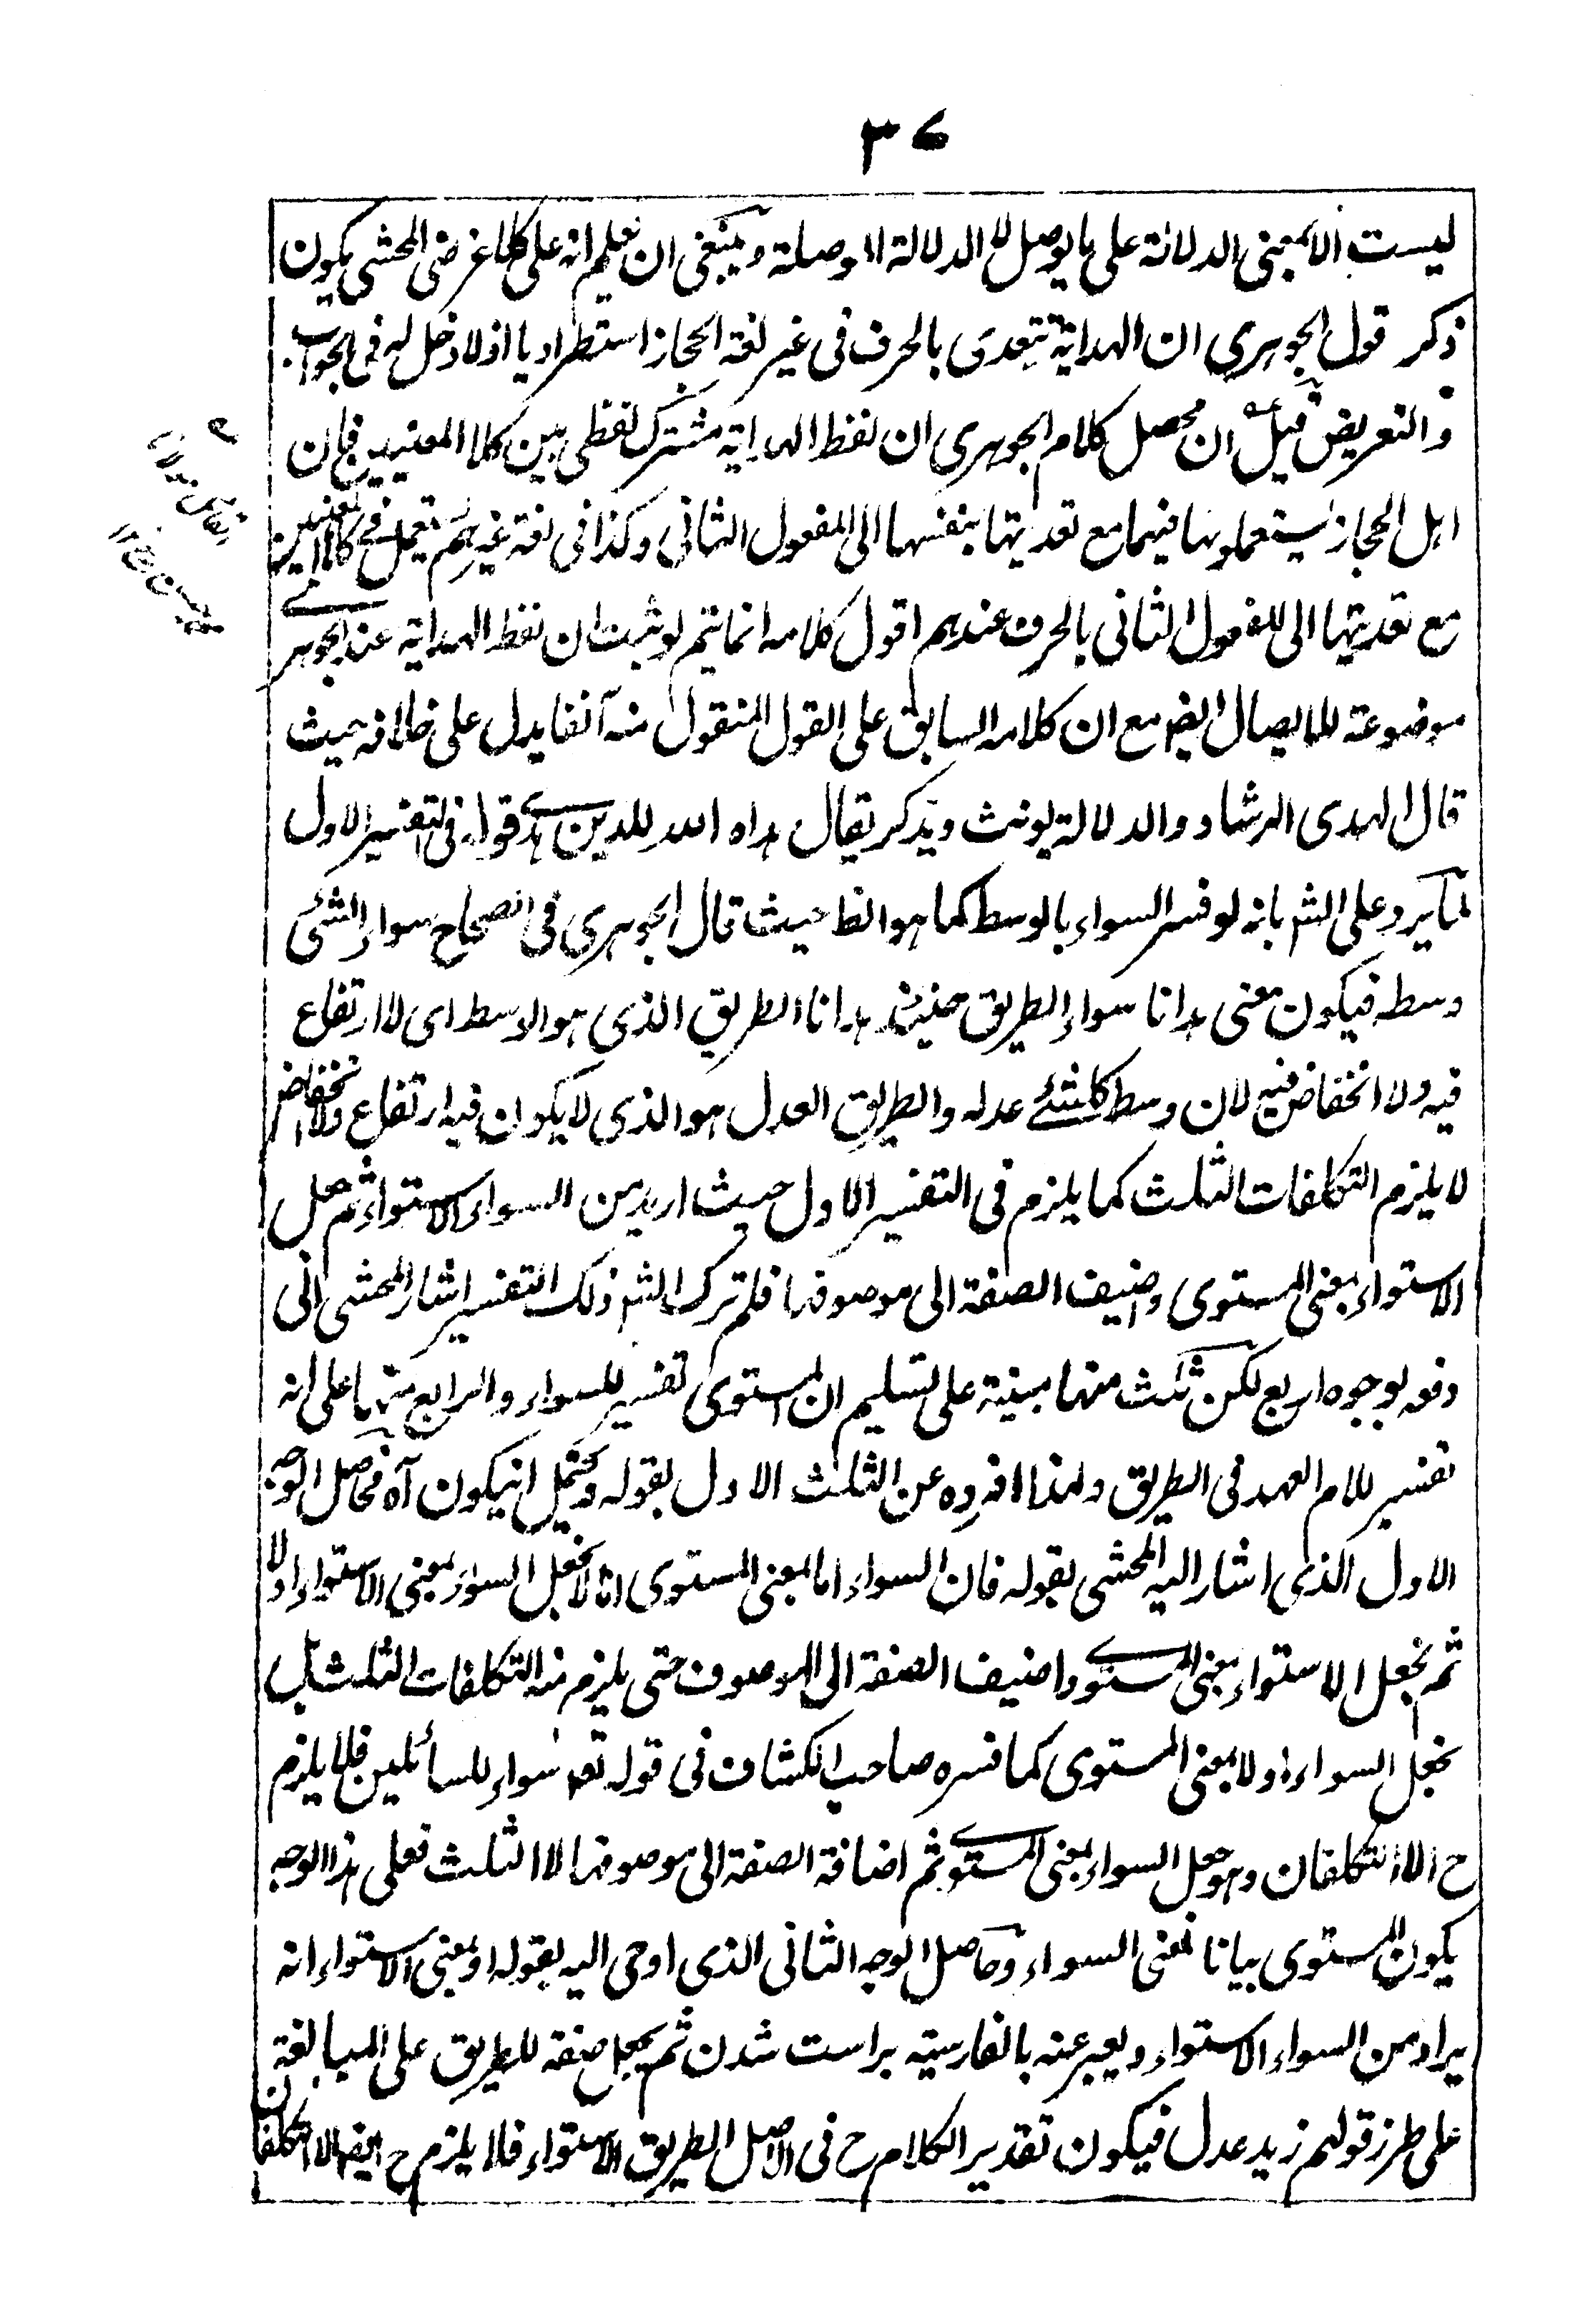 ٣٧
ليست الا بمعنى الدلالة على ما يوصل لا الدلالة الموصلة وينبغى ان تعلم انه على كلا غرضى المحشى يكون
ذكر قول الجوهرى ان الهداية تتعدى بالحرف فى غير لغة الحجاز استطراديا اذ لا دخل له فى الجواب
والتعريض قيل ان محصل كلام الجوهرى ان لفظ الهداية مشترك لفظى بين كلا المعنيين فان
اهل الحجاز يستعملونها فيهما مع تعديتها بنفسها الى المفعول الثانى وكذا فى لغة غيرهم يستعمل فى كلا المعنيين
مع تعديتها الى المفعول الثانى بالحرف عندهم اقول كلامه انما يتم لو ثبت ان لفظ الهداية عند الجوهرى
موضوعة للايصال ايضا مع ان كلامه السابق على القول المنقول منه آنفا يدل على خلافه حيث
قال الهدى الرشاد والدلالة يونث ويذكر يقال هداه الله للدين هدى قوله فى التفسير الاول
لما يرد على الشم بانه لو فسر السواء بالوسط كما هو الظ حيث قال الجوهرى فى الصحاح سواء الشئ
وسطه فيكون معنى هدانا سواء الطريق حينئذ هدانا الطريق الذى هو الاوسط اى لا ارتفاع
فيه ولا انخفاض فيه لان وسط كل شئ عدله والطريق العدل هو الذى لا يكون فيه ارتفاع ولا انخفاض
لا يلزم التكلفات الثلث كما يلزم فى التفسير الاول حيث اريد من السواء الاستواء ثم جعل
الاستواء بمعنى المستوى واضيف الصفة الى موصوفها فلم ترك الشم ذلك التفسير اشار المحشى الى
دفعه بوجوه اربع لكن ثلث منها مبنية على تسليم ان المستوى تفسير للسواء والرابع منها على انه
تفسير للام العهد فى الطريق ولهذا افرده عن الثلث الاول بقوله ويحتمل ان يكون آه فحاصل الوجه
الاول الذى اشار اليه المحشى بقوله فان السواء اما بمعنى المستوى انا لا نجعل السواء بمعنى الاستواء اولا
ثم نجعل الاستواء بمعنى المستوى واضيف الصفة الى الموصوف حتى يلزم منه التكلفات الثلث بل
نجعل السواء اولا بمعنى المستوى كما فسره صاحب الكشاف فى قوله تعم سواء للسائلين فلا يلزم
ح الا التكلفان وهو جعل السواء بمعنى المستوى ثم اضافة الصفة الى موصوفها لا الثلث فعلى هذا الوجه
يكون المستوى بيانا لمعنى السواء وحاصل الوجه الثانى الذى اوحى اليه بقوله او بمعنى الاستواء انه
يراد من السواء الاستواء ويعبر عنه بالفارسية براست شدن ثم يجعل صفة للطريق على المبالغة
على طرز قولهم زيد عدل فيكون تقدير الكلام ح فى الاصل الطريق الاستواء فلا يلزم ح ايضا الا التكلفان